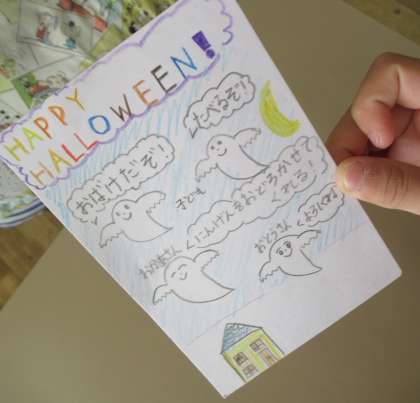 HAPPY
HALLOWEEN!
たべるぞ!
おばけだぞ!
子ども
にんげんをおどろかせて
くれる!
お母さん
おとうさん